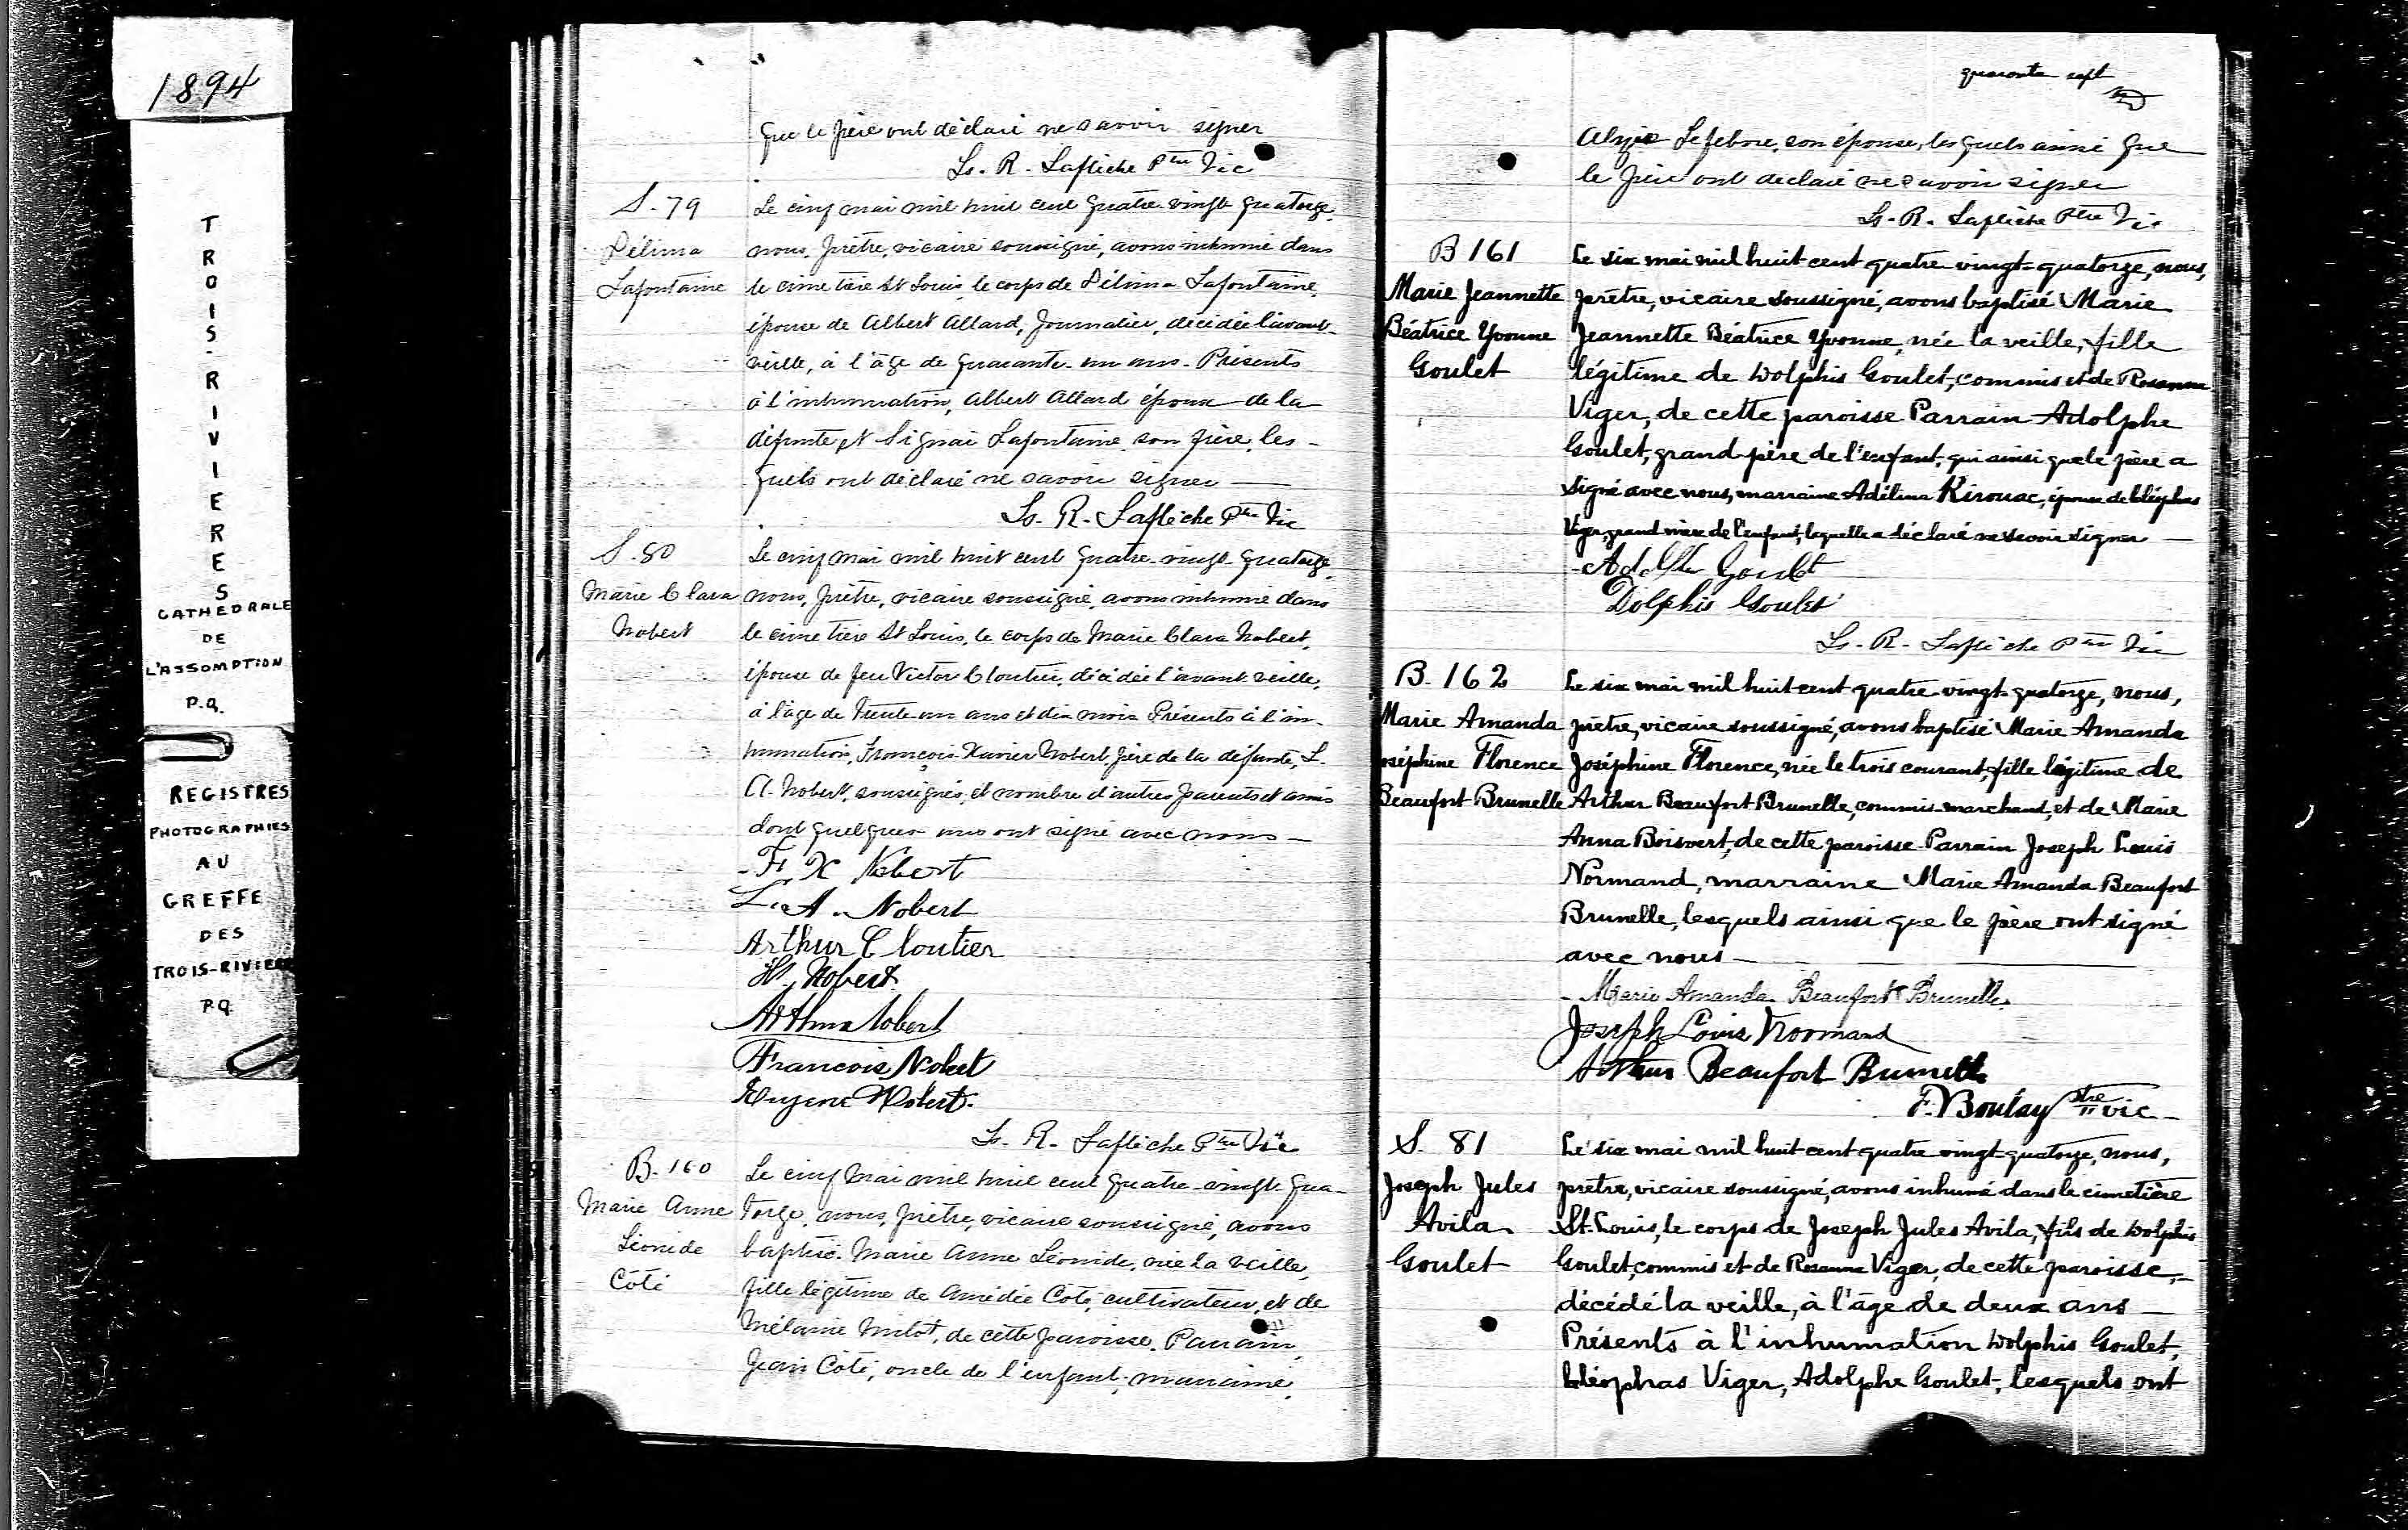 1894
TROIS-RIVIERES
CATHEDRALE
DE
L'ASSOMPTION
P.Q.
REGISTRES
PHOTOGRAPHIES
AU
GREFFE
DES
TROIS-RIVIERE
P.Q.
que le père ont déclaré ne savoir signer
Ls. R. Laflèche Ptre Vic
S. 79
Délima
Lafontaine
Le cinq mai mil huit cent quatre-vingt-quatorze,
nous, prêtre, vicaire soussigné, avons inhumé dans
le cimetière St Louis, le corps de Délima Lafontaine,
épouse de Albert Allard, journalier, décédée l'avant-
veille, à l'âge de quarante-un ans. Présents
à l'inhumation, Albert Allard époux de la
défunte et Signaï Lafontaine son frère, les-
quels ont déclaré ne savoir signer
Ls. R. Laflèche Ptre Vic
S. 80
Marie Clara
Nobert
Le cinq mai mil huit cent quatre-vingt-quatorze,
nous, prêtre, vicaire soussigné, avons inhumé dans
le cimetière St Louis, le corps de Marie Clara Nobert,
épouse de feu Victor Cloutier, décédée l'avant veille,
à l'âge de trente-un ans et dix mois. Présents à l'in-
humation, François-Xavier Nobert, père de la défunte, L.
A. Nobert, soussignés, et nombre d'autres parents et amis
dont quelques-uns ont signé avec nous
F. X Nobert
L. A. Nobert
Arthur Cloutier
H. Nobert
Arthur Nobert
François Nobert
Eugene Nobert.
Ls. R. Laflèche Ptre Vic
B. 160
Marie Anne
Léonide
Côté
Le cinq mai mil huit cent quatre-vingt-qua-
torze, nous, prêtre, vicaire soussigné, avons
baptisé Marie Anne Léonide, née la veille,
fille légitime de Amédée Côté, cultivateur, et de
Mélanie Milot, de cette paroisse. Parrain,
Jean Côté, oncle de l'enfant; marraine,
quarante sept
Alzire Lefebvre, son épouse, lesquels ainsi que
le père ont déclaré ne savoir signer
Ls. R. Laflèche Ptre Vic
B 161
Marie Jeannette
Béatrice Yvonne
Goulet
Le six mai mil huit cent quatre-vingt-quatorze, nous,
prêtre, vicaire soussigné, avons baptisé Marie
Jeannette Béatrice Yvonne, née la veille, fille
légitime de Dolphis Goulet, commis et de Rosanna
Viger, de cette paroisse Parrain Adolphe
Goulet, grand père de l'enfant, qui ainsi que le père a
signé avec nous, marraine Adélina Kirouac, épouse de Cléophas
Viger, grand mère de l'enfant, laquelle a déclaré ne savoir signer
Adolphe Goulet
Dolphis Goulet
Ls. R. Laflèche Ptre Vic
B. 162
Marie Amanda
Joséphine Florence
Beaufort Brunelle
Le six mai mil huit cent quatre-vingt-quatorze, nous,
prêtre, vicaire soussigné, avons baptisé Marie Amanda
Joséphine Florence, née le trois courant, fille légitime de
Arthur Beaufort Brunelle, commis-marchand, et de Marie
Anna Boisvert, de cette paroisse Parrain Joseph Louis
Normand, marraine Marie Amanda Beaufort
Brunelle, lesquels ainsi que le père ont signé
avec nous
Marie Amanda Beaufort Brunelle
Joseph Louis Normand
Arthur Beaufort Brunelle
F. Boulay Ptre vic
S. 81
Joseph Jules
Avila
Goulet
Le six mai mil huit cent quatre-vingt-quatorze, nous,
prêtre, vicaire soussigné, avons inhumé dans le cimetière
St. Louis, le corps de Joseph Jules Avila, fils de Dolphis
Goulet, commis et de Rosanna Viger, de cette paroisse,
décédé la veille, à l'âge de deux ans
Présents à l'inhumation Dolphis Goulet,
Cléophas Viger, Adolphe Goulet, lesquels ont